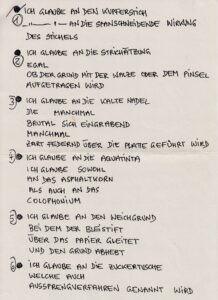 ICH GLAUBE AN DEN KUPFERSTICH
1 — " — AN DIE SPANSCHNEIDENDE WIRKUNG
DES STICHELS
ICH GLAUBE AN DIE STRICHÄTZUNG
2 EGAL
OB DER GRUND MIT DER WALZE ODER DEM PINSEL
AUFGETRAGEN WIRD
3 ICH GLAUBE AN DIE KALTE NADEL
DIE MANCHMAL
BRUTAL SICH EINGRABEND
MANCHMAL
ZART FEDERND ÜBER DIE PLATTE GEFÜHRT WIRD
4 ICH GLAUBE AN DIE AQUATINTA
ICH GLAUBE SOWOHL
AN DAS ASPHALTKORN
ALS AUCH AN DAS
COLOPHONIUM
5 ICH GLAUBE AN DEN WEICHGRUND
BEI DEM DER BLEISTIFT
ÜBER DAS PAPIER GLEITET
UND DEN GRUND ABHEBT
6 ICH GLAUBE AN DIE ZUCKERTUSCHE
WELCHE AUCH
AUSSPRENGVERFAHREN GENANNT WIRD